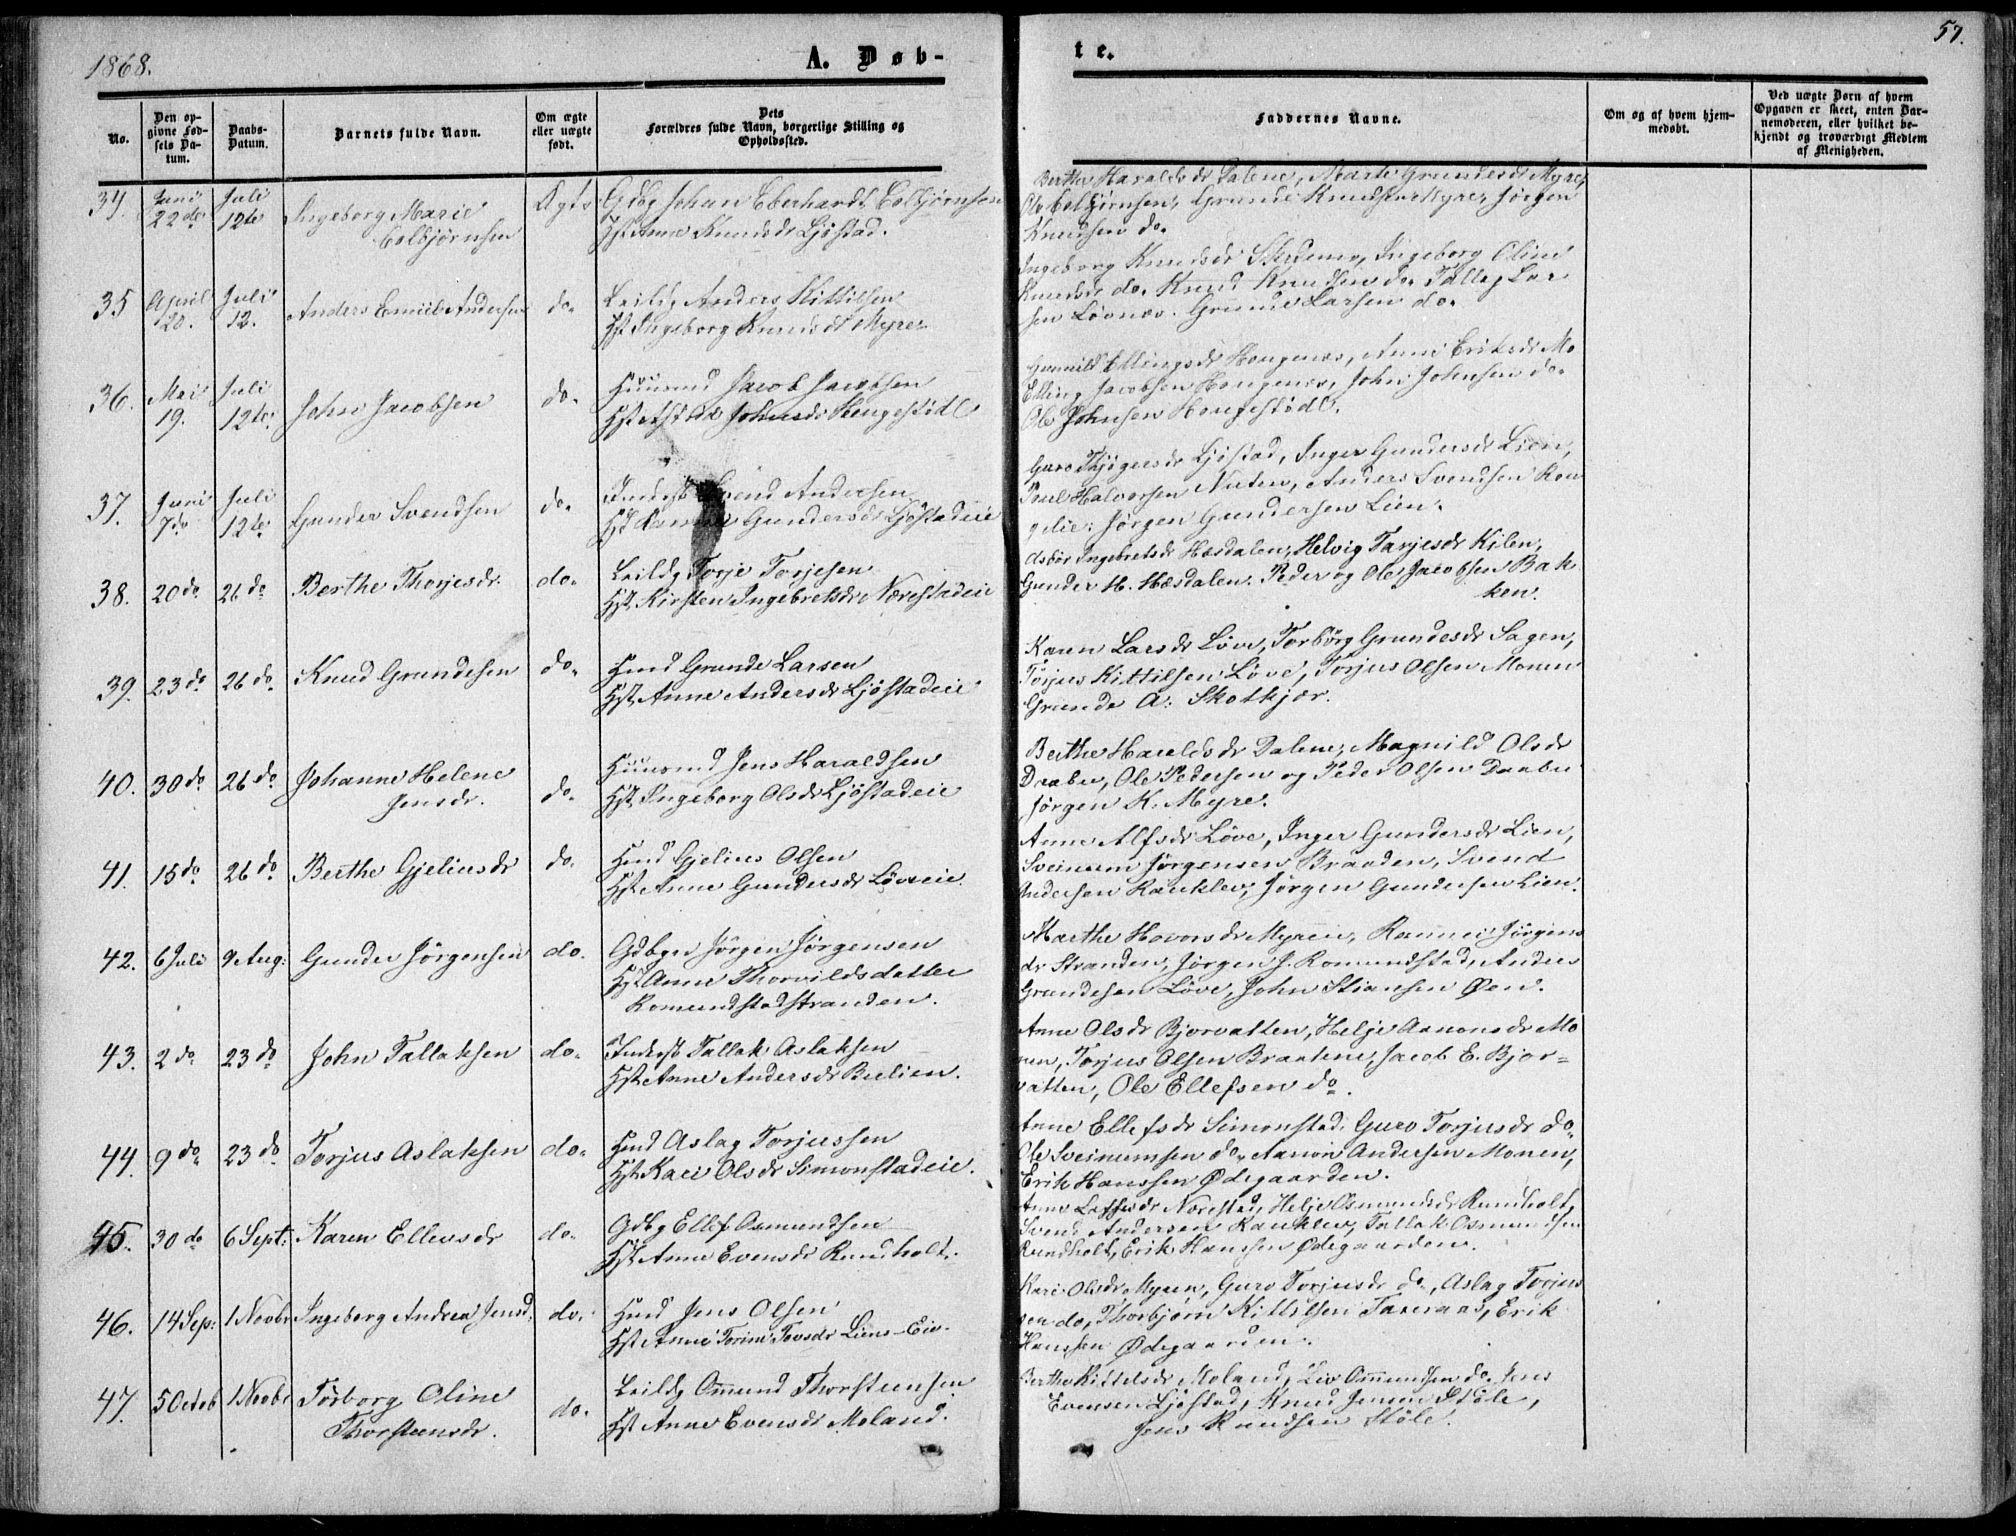 1868.
A. Døb-
te.
57.
No.
Den op-
givne Fød-
sels Da-
tum.
Daabs-
Datum.
Barnets fulde Navn.
Om ægte
eller uægte
født.
Dets
Forældres fulde Navn, borgerlige Stilling og
Opholdssted.
Faddernes Navne.
Om og af hvem hjem-
medøbt.
Ved uægte Børn af hvem
Opgaven er skeet, enten Bar-
nemoderen, eller hvilket be-
kjendt og troværdigt Medlem
af Menigheden.
34. Juni 22de Juli 12te Ingeborg Marie
Colbjørnsen
Ægte
Gdbg Johan Eberhardt Colbjørnsen
Hst Anne Knudsdr Ljøstad.
Berthe Haraldsdr Dalene, Marte Grundesdr Myre,
Ole Colbjørnsen, Grunde Knudsen Myre, Jørgen
Knudsen do.
35 April 20. Juli 12. Anders Emil Andersen do.
Leildg Anders Kittilsen
Hst Ingeborg Knudsdr Myre
Ingeborg Knudsdr, Ingeborg Oline
Knudsdr do. Knud Knudsen do. Tallag Lar-
sen Løvnes. Grunde Larsen do.
36. Mai 19. Juli 12te John Jacobsen do.
Huusmd Jacob Jacobsen
Hst Johnsdr Hengestødl
Gunnild Ellingsdr Hougenes, Anne Eriksdr Mo
Elling Jacobsen Hougenes, John Johnsen do.
Ole Johnsen Hougestødl.
37. Juni 7de Juli 12te Gunder Svendsen do.
Inderst Svend Andersen
Hst Gundersdr Ljøstadeie
Guro Thjøgersdr Ljøstad, Inger Gundersdr Lien,
Poul Halvorsen Nuten, Anders Svendsen Ron
gelie. Jørgen Gundersen Lien.
38. 20de 26do Berthe Thorjesdr. do.
Leildg Torje Torjesen
Hst Kirsten Ingebretsdr Nærestadeie
Asbør Ingebretsdr Hæsdalen, Helvig Tarjesdr Kilen,
Gunder H. Hæsdalen. Peder og Ole Jacobsen Bak-
ken.
39. 23do 26do. Knud Grundesen do.
Hmd Grunde Larsen
Hst Anne Andersdr Ljøstadeie
Karen Larsdr Løve, Torbørg Grundesdr Sagen,
Torjus Kittilsen Løve, Torjus Olsen Monen
Grunde A. Skotkjær.
40. 30do 26do. Johanne Helene
Jensdr. do.
Huusmd Jens Haraldsen
Hst Ingeborg Olsdr Ljøstadeie
Berthe Haraldsdr Dalene, Magnild Olsdr
Drabu, Ole Pedersen og Peder Olsen Daabu
Jørgen K. Myre.
41. 15do 26do. Berthe Gjeliusdr do.
Hmd Gjelius Olsen
Hst Anne Gundersdr Løveeie
Anne Alfsdr Løve, Inger Gundersdr Lien,
Sveinum Jørgensen Braaden, Svend
Andersen Rauklev, Jørgen Gundersen Lien.
42. 6 Juli 9 Aug: Gunder Jørgensen do.
Gdbgr Jørgen Jørgensen
Hst Anne Thorvildsdatter
Romundstadstranden.
Marthe Hovorsdr Myreie, Rannei Jørgens
dr Stranden, Jørgen J. Romundstad, Anders
Grundesen Løve, John Stiansen Øen.
43. 2do 23do John Tallaksen do.
Inderst Tallak Aslaksen
Hst Anne Andersdr Beelien.
Anne Olsdr Bjorvatten, Helje Aanonsdr Mo
nen, Torjus Olsen Braatene, Jacob E. Bjor-
vatten, Ole Ellefsen do.
44. 9do 23do. Torjus Aslaksen do.
Hmd Aslag Torjussen
Hst Kari Olsdr Simonstadeie.
Anne Ellefsdr Simonstad, Guro Torjusdr do.
Ole Sveinumsen do. Aanon Andersen Monen,
Erik Hanssen Ødegaarden.
45. 30do 6 Sept: Karen Ellevsdr do.
Gdbg Ellef Osmundsen
Hst Anne Evensdr Rundholt.
Anne Leffsdr Nærestad, Helje Osmundsdr Rundholt,
Svend Andersen Rauklev, Tallak Osmundsen
Rundholt, Erik Hanssen Ødegaarden.
46. 14 Sep: 1 Novbr Ingeborg Andrea Jensd. do.
Hmd Jens Olsen
Hst Anne Torine Tovsdr Liens-Eie.
Kari Olsdr Myren, Guro Torjusdr do, Aslag Torjus
sen do, Thorbjørn Kittilsen Taxeraas, Erik
Hanssen Ødegaarden.
47. 5 Octob 1 Novbr Torborg Oline
Thorsteensdr. do.
Leildg Omund Thorsteensen
Hst Anne Evensdr Moland.
Berthe Kittelsdr Moland, Liv Ommundsen do. Jens
Evensen Ljøstad, Knud Jensen Støle,
Jens Knudsen Støle.